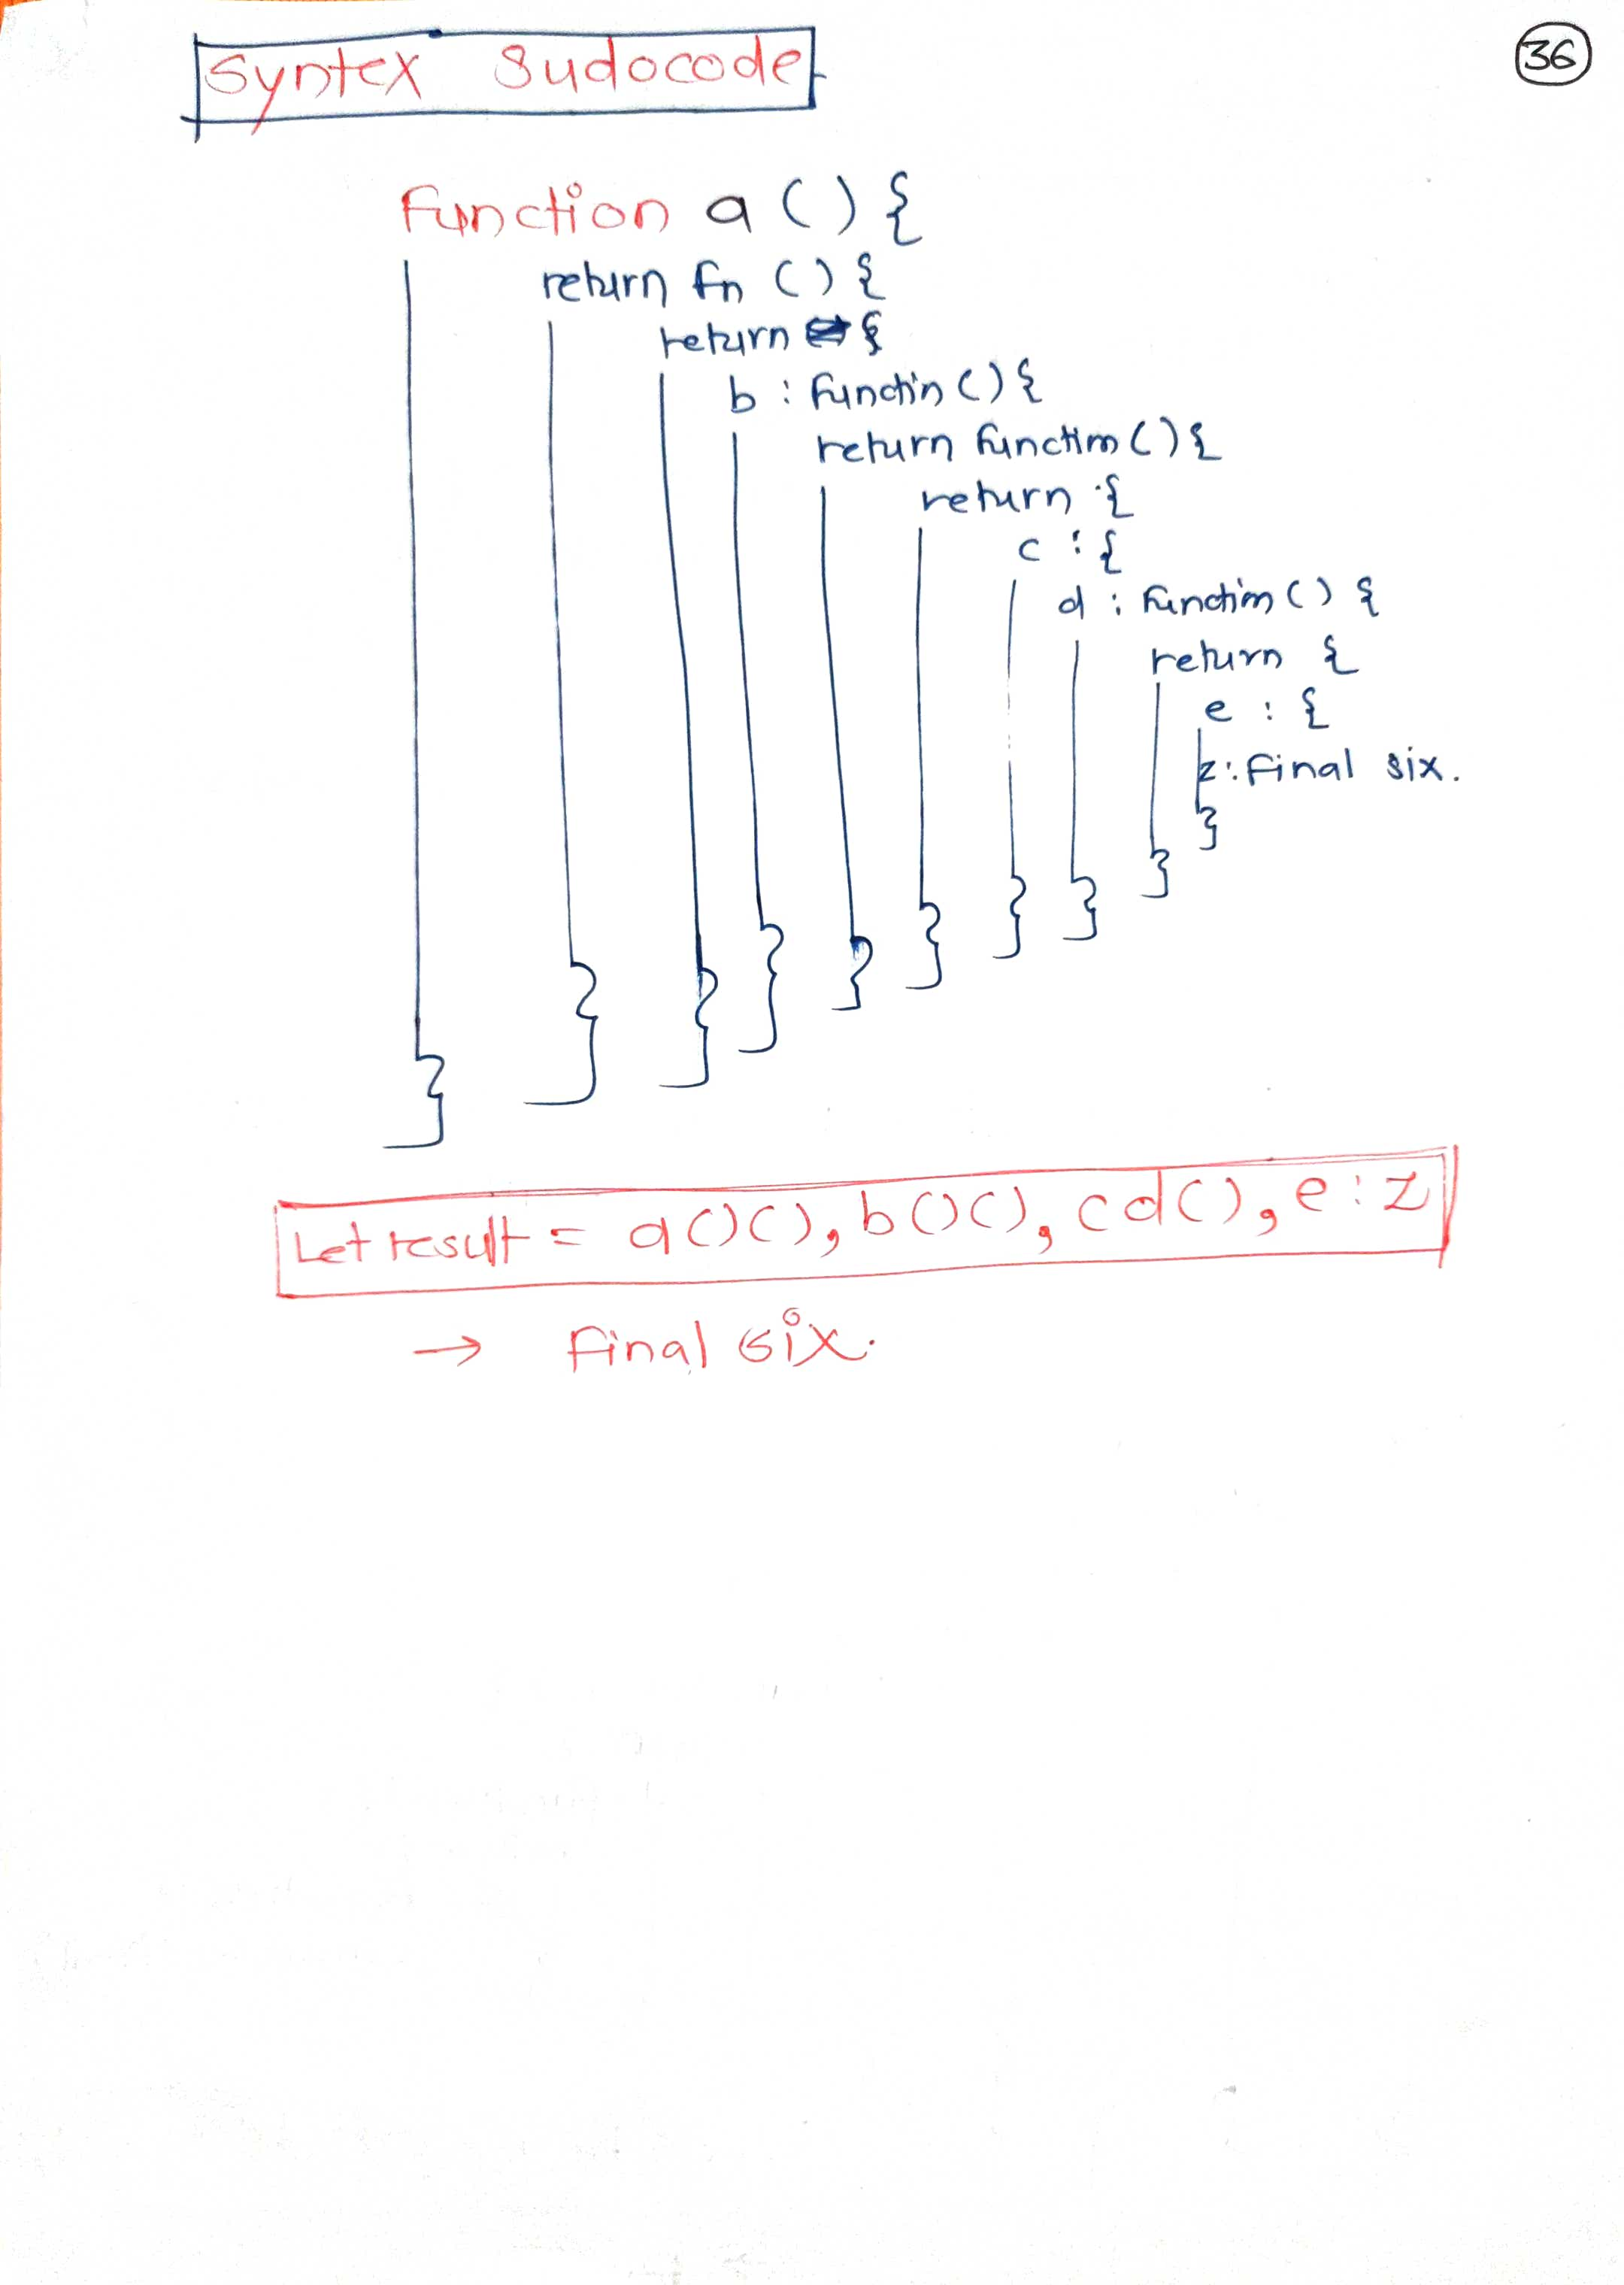 Syntex Sudocode
36
Function a () {
return fn () {
return {
b : functin () {
return function () {
return {
c : {
d : function () {
return {
e : {
z : final six.
}
}
}
}
}
}
}
}
}
}
Let result = a()(), b()(), c d(), e : z
→ final six.